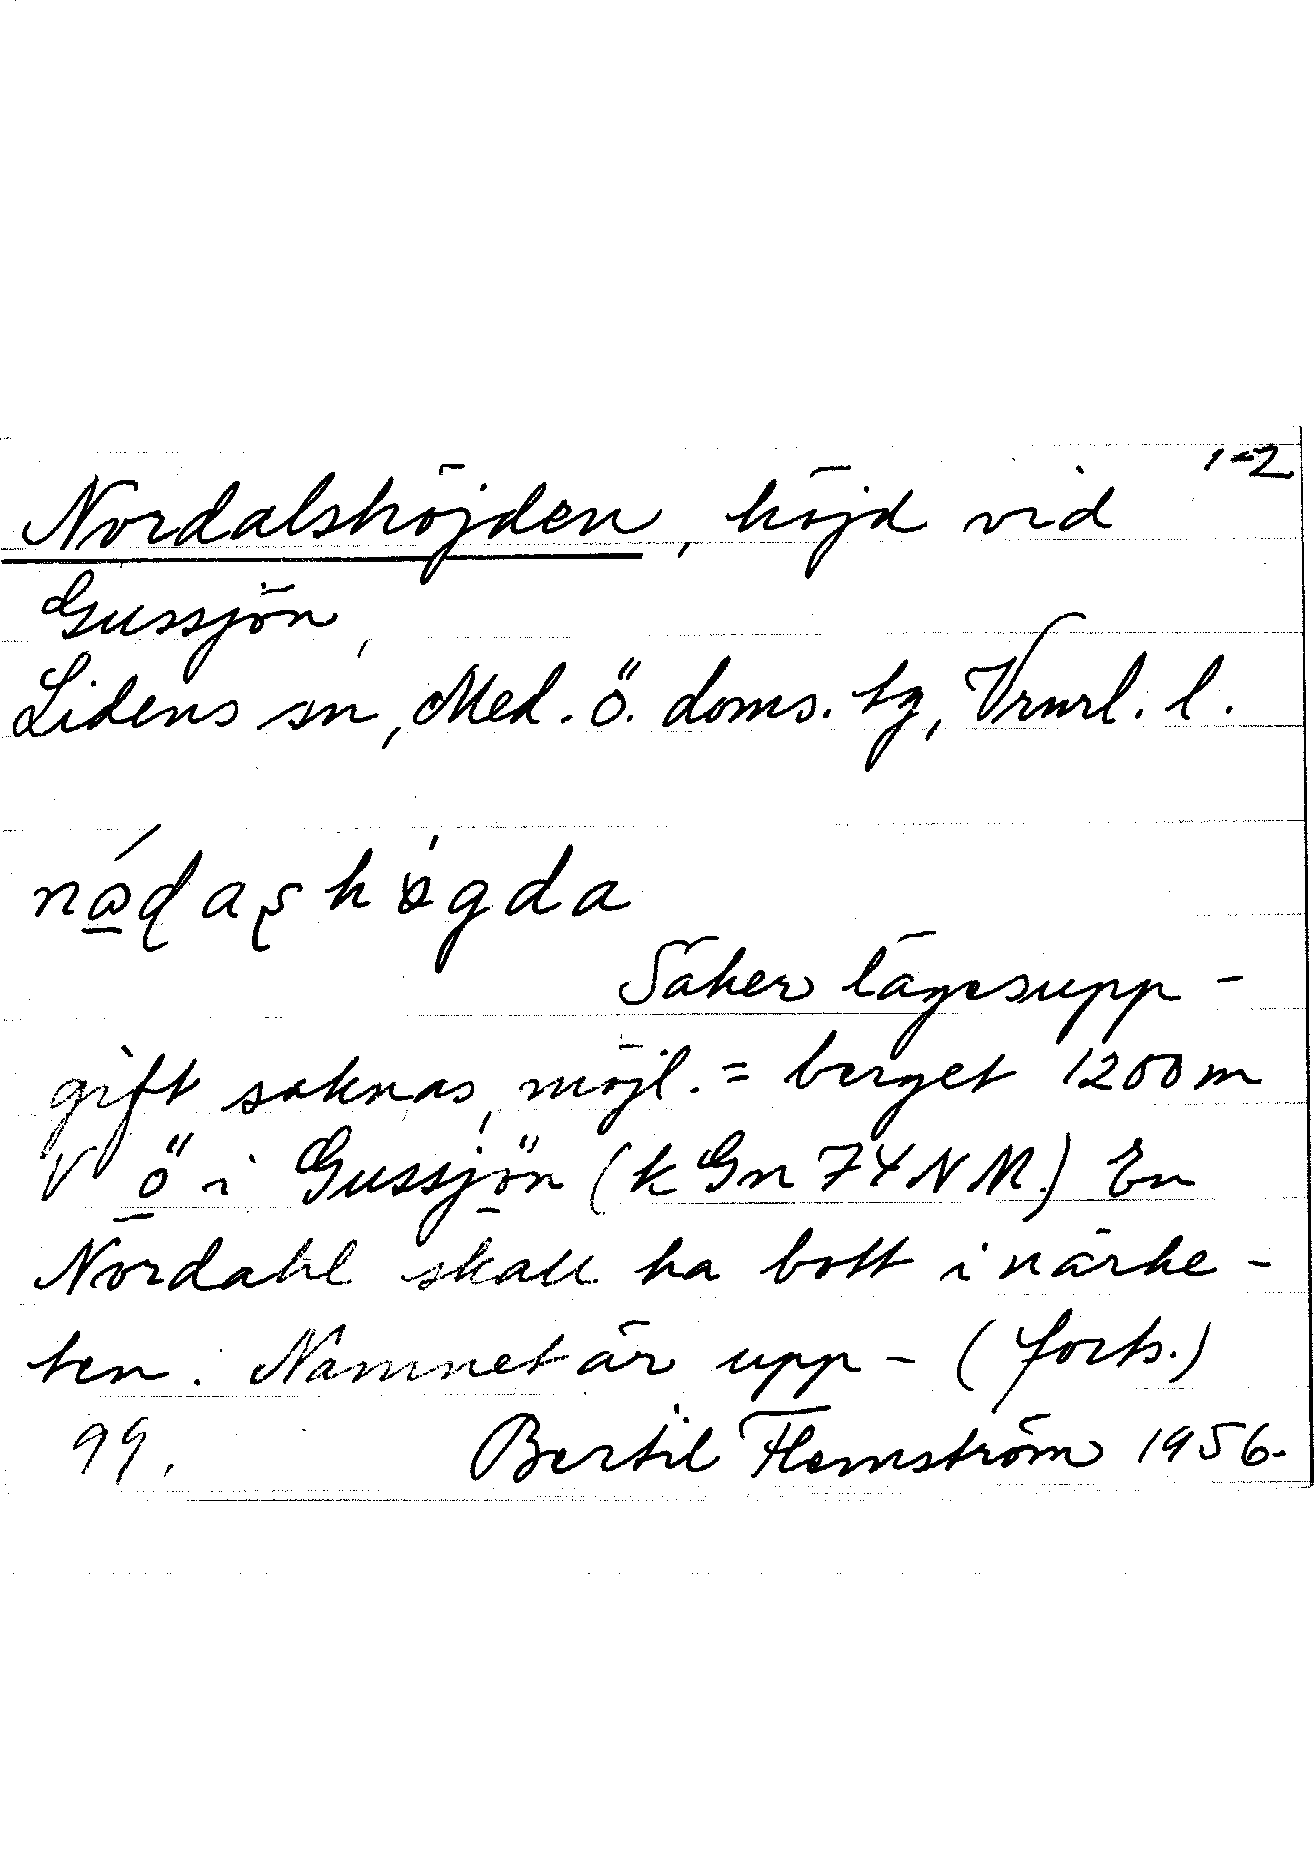 1-2
Nordalshöjden, höjd vid
Gussjön,
Lidens sn, Med. ö. doms. tg, Vrnrl. l.
Säker lägesupp-
gift saknas, möjl. = berget 1200 m
V ö i Gussjön (k Gn 74 NM.) En
Nordahl skall ha bott i närhe-
ten. Namnet är upp- (forts.)
99. Bertil Flemström 1956.